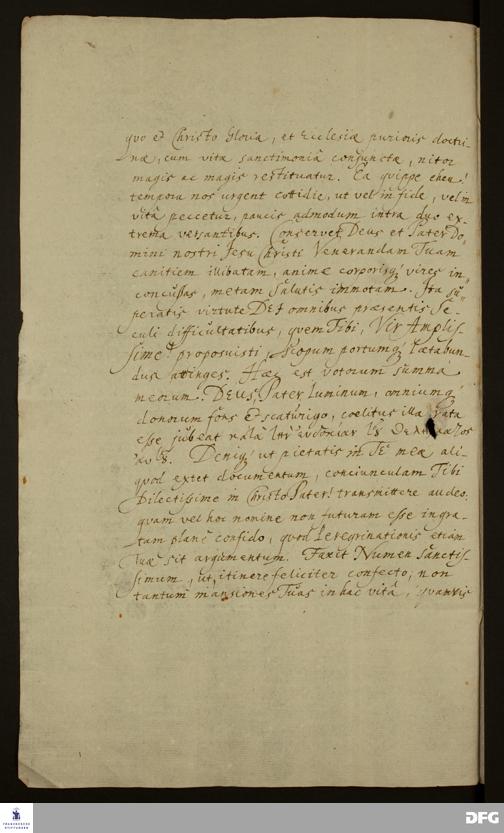 quo et Christo Gloria, et Ecclesiæ purioris doctri-
næ, cum vitæ sanctimoniâ conjunctæ, nitor
magis ac magis restituatur. Ea quippe eheu!
tempora nos urgent cottidie, ut vel in fide, vel in
vitâ peccetur, paucis admodum intra duo ex-
trema versantibus. Conservet Deus et Pater Do-
mini nostri Jesu Christi Venerandam Tuam
canitiem illibatam, animæ corporisq; vires in-
concussas, metam salutis immotam. Ita su-
peratis virtute DEI omnibus præsentis Se-
culi difficultatibus, quem Tibi, Vir Amplis-
sime! proposuisti scopum portumq; lætabun-
dus attinges. Hæc est votorum summa
meorum. DEUS, Pater luminum, omniumq;
donorum fons et scaturigo, coelitus illa rata
esse jubeat κατὰ τὴν εὐδοκίαν τȣ θελήματος
αὐτȣ. Deniq; ut pietatis in TE meæ ali-
quod extet documentum, conciunculam Tibi
Dilectissime in Christo Pater! transmittere audeo.
quam vel hoc nomine non futuram esse ingra-
tam planè confido, quod Peregrinationis etiam
Tuæ sit argumentum. Faxit Numen Sanctis-
simum, ut, itinere feliciter confecto, non
tantum mansiones Tuas in hac vitâ, quamvis
FRANCKESCHE
STIFTUNGEN
DFG